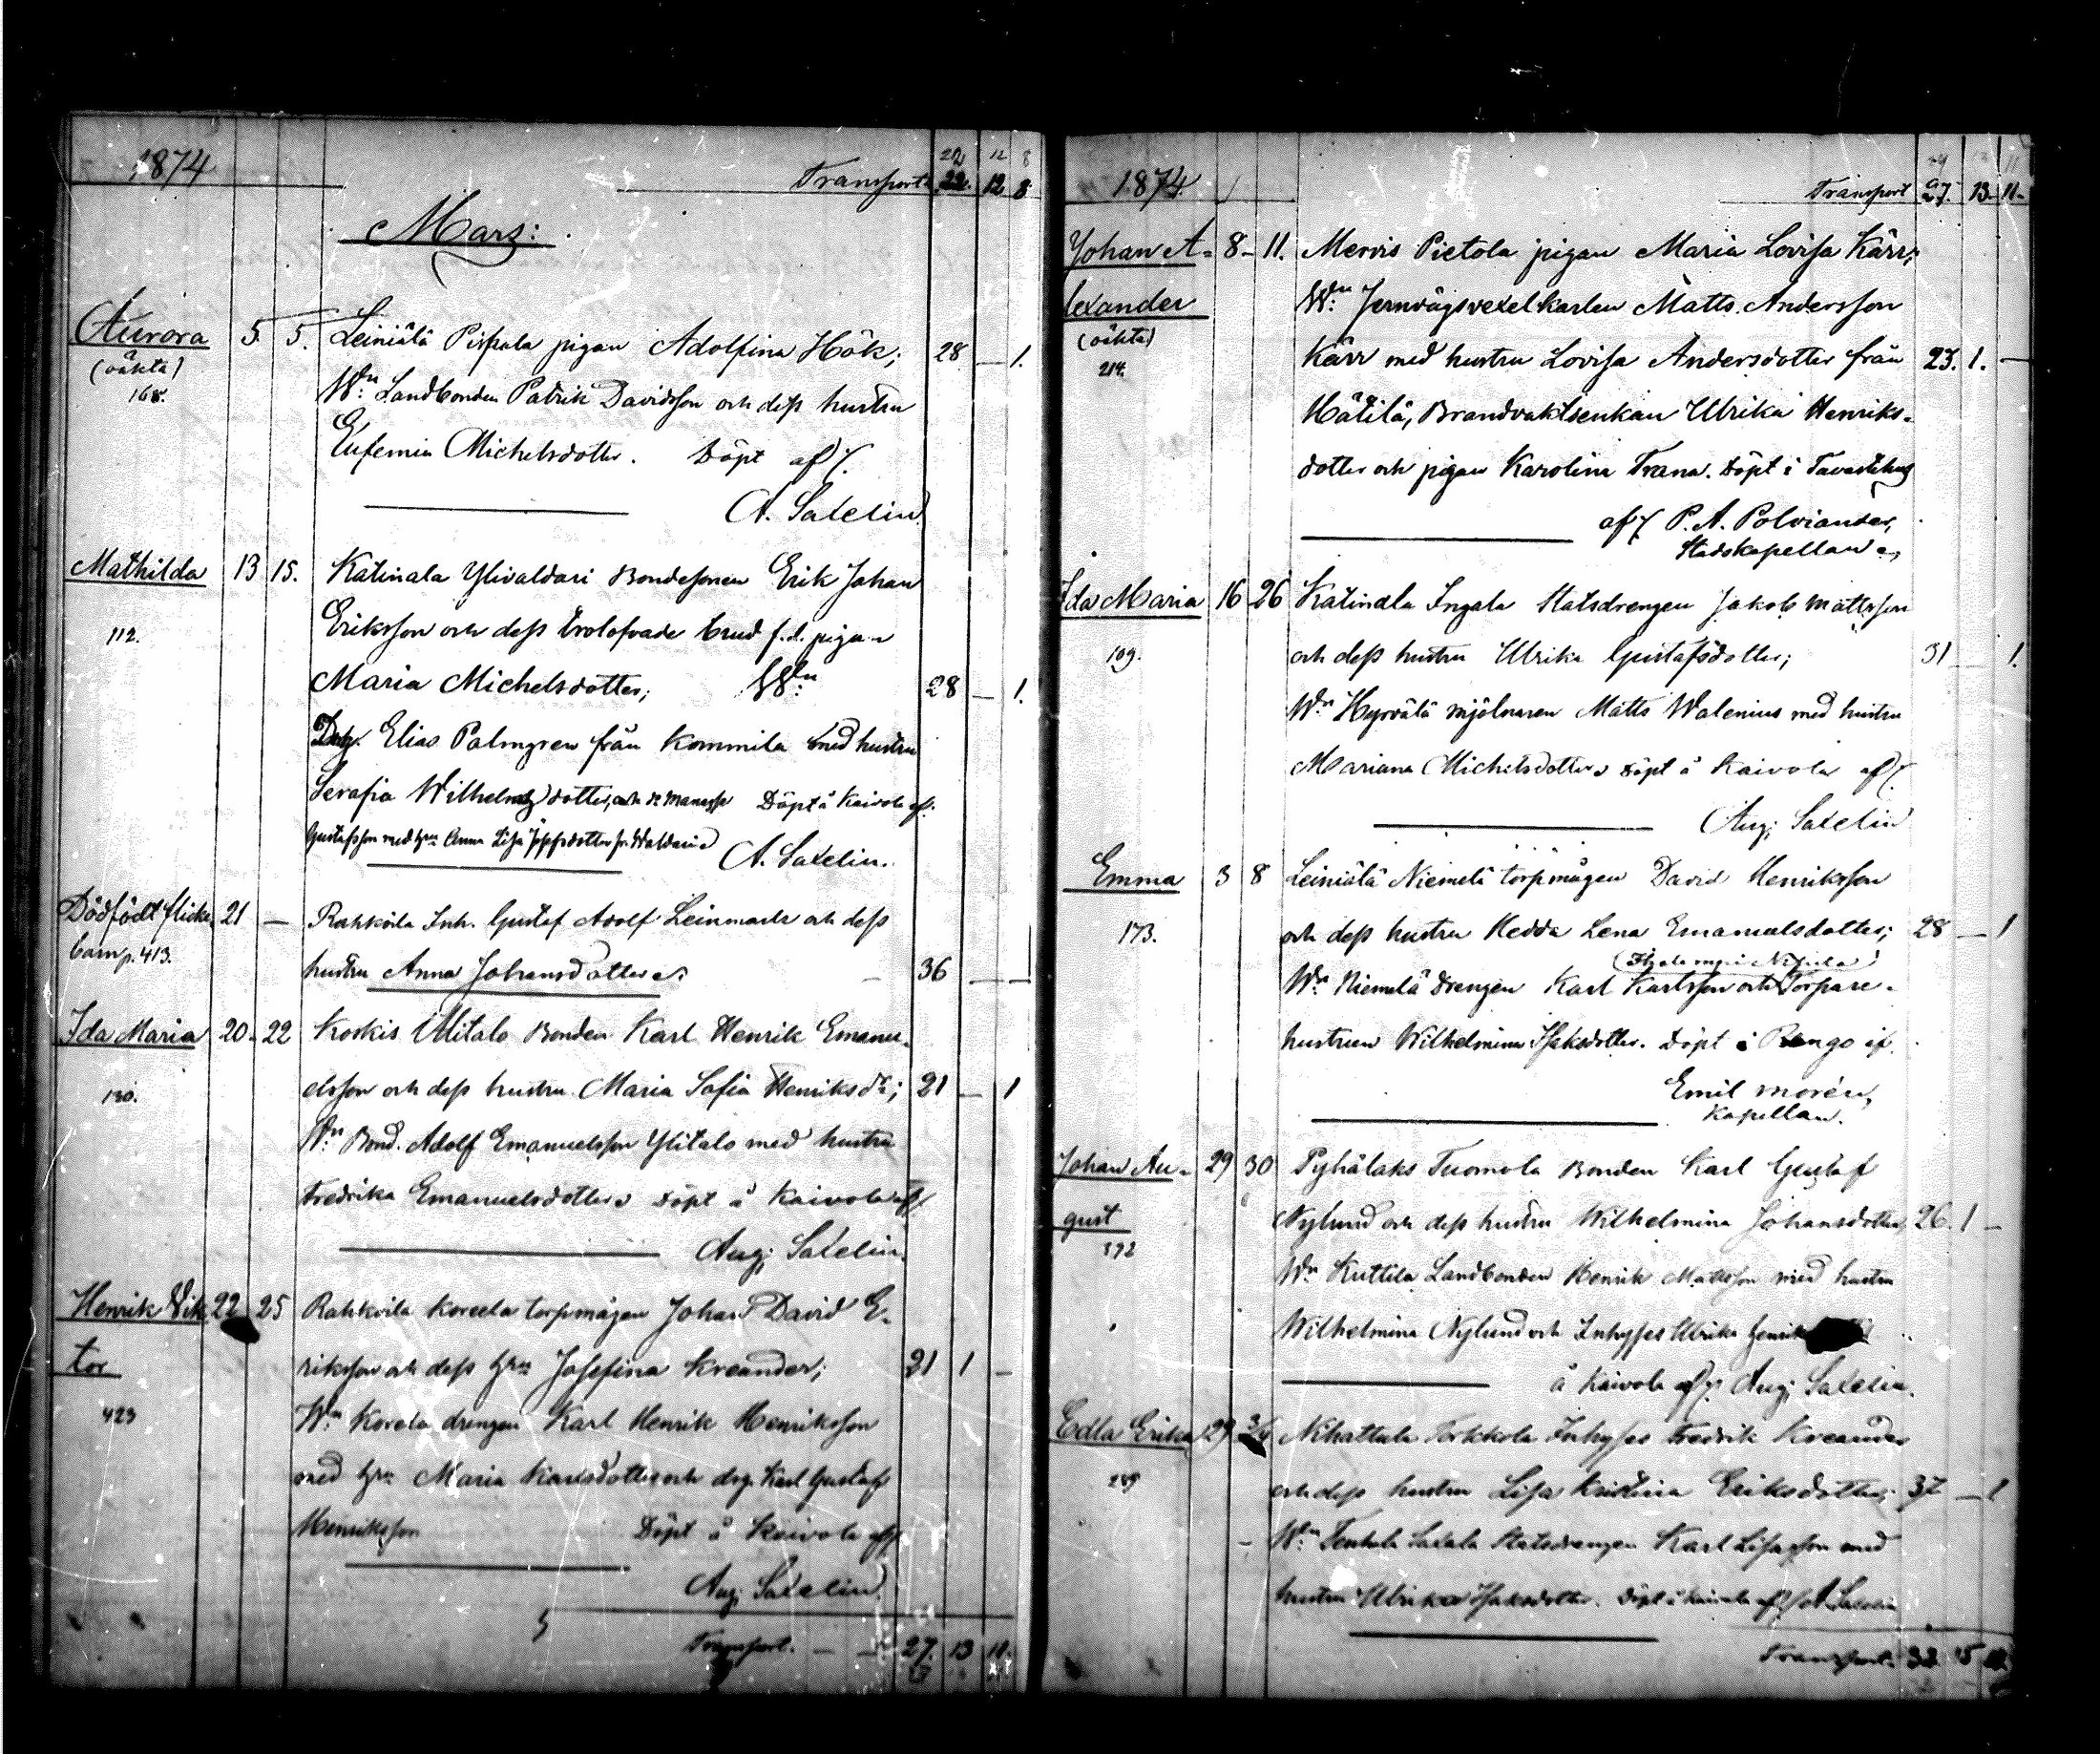 1874 Transport 22. 12 8
22 12 8
Mars:
Aurora 5. 5. Leiniälä Pispala pigan Adolfina Hök; 28 — 1.
(oäkta) W:n Landbonden Patrik Davidsson och dess hustru
168.
Eufemia Michelsdotter. Döpt af/.
A. Saxelin
Mathilda 13 15. Katinala Ylivaldari Bondesonen Erik Johan
112. Eriksson och dess trolofvade brud f.d. pigan
Maria Michelsdotter; W:n 28 — 1.
Drg. Elias Palmgren från Kommila med hustru
Serafia Wilhelmsdotter, och Döpt å Kaivola af.
Gustafsson med h:n Anna Lisa A. Saxelin.
Dödfödt flicka 21 — Rahkoila Inh. Gustaf Adolf Leinmark och dess
Comp. 413.
hustru Anna Johansdotter 36 —
Ida Maria 20 - 22 Koskis Ylitalo Bonden Karl Henrik Emanu-
130. elsson och dess hustru Maria Sofia Henriksd:r; 21 — 1
W:n Bond. Adolf Emanuelsson Ylitalo med hustru
Fredrika Emanuelsdotter Döpt å Kaivola af/
Aug. Saxelin.
Henrik Vik 22 25 Rahkoila Koreela torpmågen Johan David E-
tor riksson och dess h:n Josefina Kreander; 21 1 —
423 W:n Korela drengen Karl Henrik Henriksson
med h:n Maria Karlsdotter och drg. Karl Gustaf
Henriksson Döpt å Kaivola af/
Aug. Saxelin.
Transport. — — 27. 13 11.
1874 Transport 27. 13. 11.
Johan A- 8 - 11. Mervis Pietola pigan Maria Lovisa Kärr;
lexander W:n Jernvägsvexelkarlen Matts Andersson
(oäkta) Kärr med hustru Lovisa Andersdotter från 23. 1. —
214.
Hätilä, Brandvaktsenkan Ulrika Henriks-
dotter och pigan Karolina Trana. Döpt i Tavastehus
af/ P. A. Polviander,
Stadskapellan
Ida Maria 16 26 Katinala Ingala Statsdrengen Jakob Mattsson
109. och dess hustru Ulrika Gustafsdotter; 31 1.
W:n Hyrvälä mjölnaren Matts Walenius med hustru
Mariana Michelsdotter Döpt å Kaivola af/.
Aug. Saxelin
Emma 3 8 Leiniälä Niemelä torpmågen David Henriksson
173. och dess hustru Hedda Lena Emanuelsdotter; 28 — 1
W:n Niemelä drengen Karl Karlsson och Torpare-
hustrun Wilhelmina Isaksdotter. Döpt i Rengo af.
Emil Morén,
Kapellan.
Johan Au- 29 30 Pyhälaks Tuomola Bonden Karl Gustaf
gust Nylund och dess hustru Wilhelmina Johansdotter 26. 1 —
192 W:n Kuttila Landbonden Henrik Mattsson med hustru
Wilhelmina Nylund och Inhyses Ulrika Henrik
å Kaivola af/ Aug. Saxelin.
Edla Erika 29 3/4 Nihattula Torkkola Inhyses Fredrik Kreander
och dess hustru Lisa Kristina Eriksdotter; 37 — 1
W:n Tenhola Saxala Statsdrengen Karl med
hustru Ulrika Isaksdotter. Döpt å Kaivola af/ A Saxelin
Transport. 15